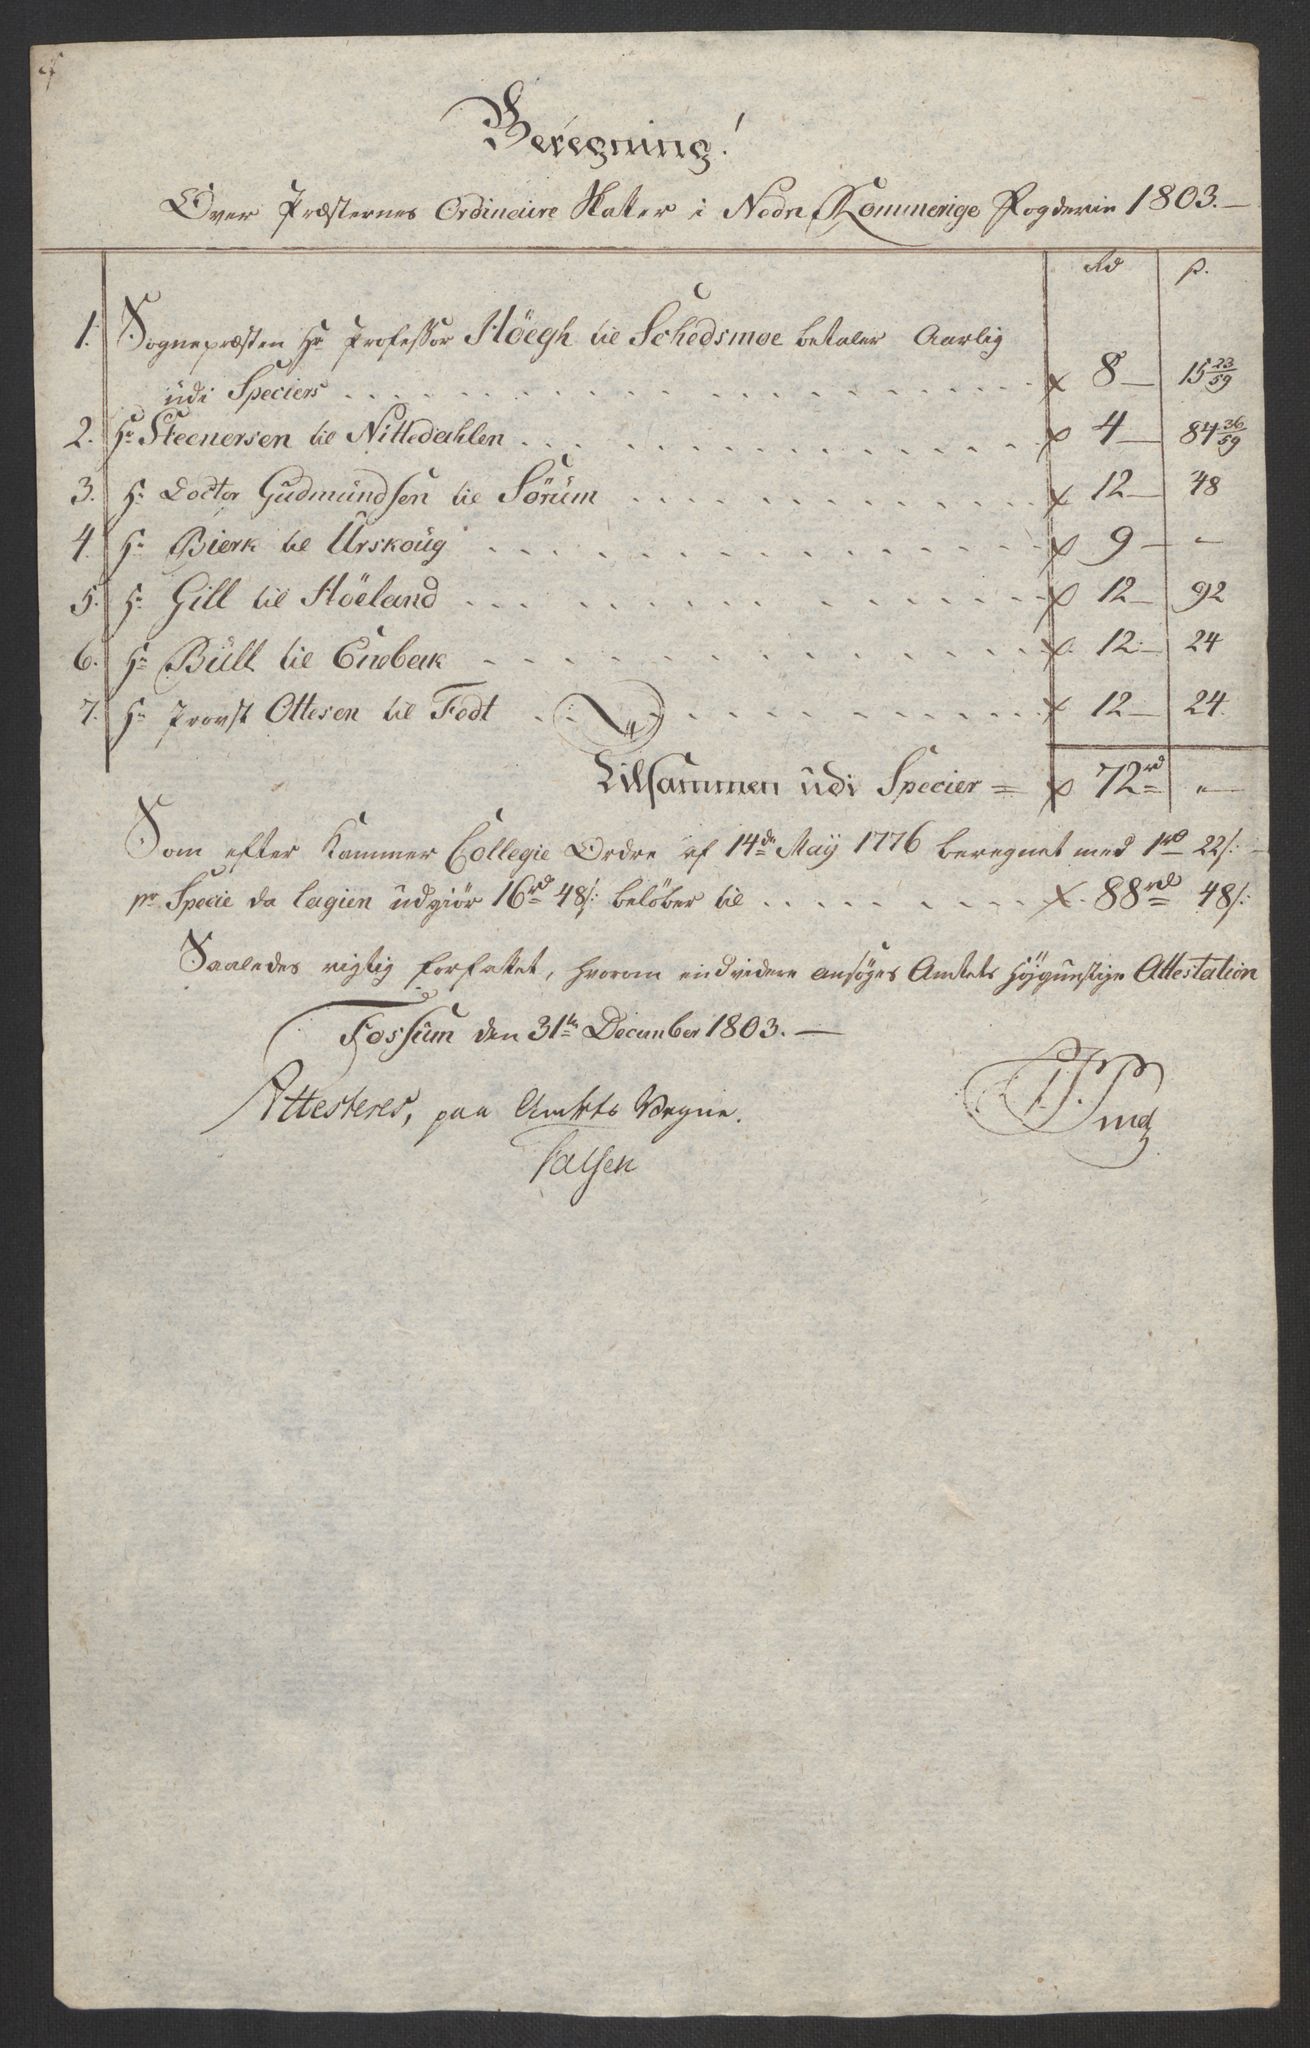 Beregning!
Over Præsternes Ordinaire Skatter i Nedre Rommerige Fogderie 1803.—
Rd ß.
1. Sognepræsten Hr Professor Höegh til Schedsmoe betaler Aarlig
udi Speciers . . . 8— 15 23/59
2. Hr Steenersen til Nittedahlen . . . 4— 84 36/59
3. Hr Doctor Gudmundsen til Sörum . . . 12— 48
4. Hr Bierk til Urskoug . . . 9— —
5. Hr Gill til Höeland . . . 12— 92
6. Hr Bull til Enebak . . . 12— 24
7. Hr Provst Ottesen til Fedt . . . 12— 24.
Tilsammen udi Specier = 72rd "—
Som efter Kammer Collegie Ordre af 14de May 1776 beregnet med 1rd 22/:
pr Specie da lagien udgiör 16rd 48/: belöber til . . . 88rd 48/:
Saaledes rigtig forfattet, hvorom endvidere ansöges Amtets Höjgunstige Attestation
Fossum den 31te December 1803.—
Attesteres, paa Amtets Vegne.
Falsen